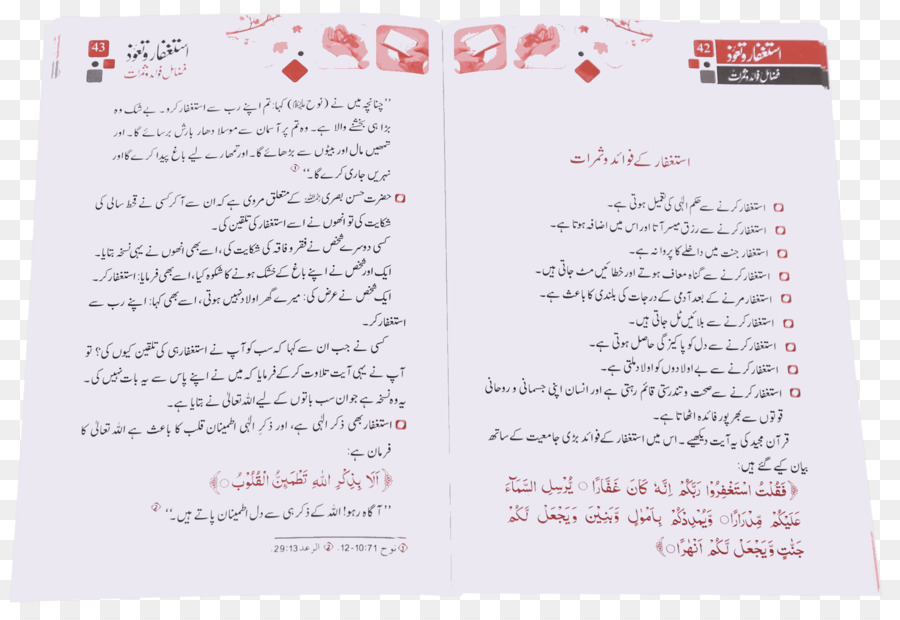 42
استغفار و تعوّذ
فضائل فوائد و ثمرات
استغفار کے فوائد و ثمرات
استغفار کرنے سے حکم الٰہی کی تعمیل ہوتی ہے۔
استغفار کرنے سے رزق میسر آتا اور اس میں اضافہ ہوتا ہے۔
استغفار جنت میں داخلے کا پروانہ ہے۔
استغفار کرنے سے گناہ معاف ہوتے اور خطائیں مٹ جاتی ہیں۔
استغفار مرنے کے بعد آدمی کے درجات کی بلندی کا باعث ہے۔
استغفار کرنے سے بلائیں ٹل جاتی ہیں۔
استغفار کرنے سے دل کو پاکیزگی حاصل ہوتی ہے۔
استغفار کرنے سے بے اولادوں کو اولاد ملتی ہے۔
استغفار کرنے سے صحت و تندرستی قائم رہتی ہے اور انسان اپنی جسمانی و روحانی
قوتوں سے بھرپور فائدہ اٹھاتا ہے۔
قرآن مجید کی یہ آیت دیکھیے۔ اس میں استغفار کے فوائد بڑی جامعیت کے ساتھ
بیان کیے گئے ہیں:
﴿فَقُلْتُ اسْتَغْفِرُوْا رَبَّكُمْ اِنَّهٗ كَانَ غَفَّارًا○ يُّرْسِلِ السَّمَآءَ
عَلَيْكُمْ مِّدْرَارًا○ وَّيُمْدِدْكُمْ بِاَمْوَالٍ وَّبَنِيْنَ وَيَجْعَلْ لَّكُمْ
جَنّٰتٍ وَّيَجْعَلْ لَّكُمْ اَنْهٰرًا○﴾
43
استغفار و تعوّذ
فضائل فوائد و ثمرات
’’چنانچہ میں نے (نوح علیہ السلام) کہا: تم اپنے رب سے استغفار کرو۔ بے شک وہ
بڑا ہی بخشنے والا ہے۔ وہ تم پر آسمان سے موسلا دھار بارش برسائے گا۔ اور
تمھیں مال اور بیٹوں سے بڑھائے گا۔ اور تمھارے لیے باغ پیدا کرے گا اور
نہریں جاری کرے گا۔‘‘ ①
حضرت حسن بصری رحمہ اللہ کے متعلق مروی ہے کہ ان سے آ کر کسی نے قحط سالی کی
شکایت کی تو انھوں نے اسے استغفار کی تلقین کی۔
کسی دوسرے شخص نے فقر و فاقہ کی شکایت کی، اسے بھی انھوں نے یہی نسخہ بتایا۔
ایک اور شخص نے اپنے باغ کے خشک ہونے کا شکوہ کیا، اسے بھی فرمایا: استغفار کر۔
ایک شخص نے عرض کی: میرے گھر اولاد نہیں ہوتی، اسے بھی کہا: اپنے رب سے
استغفار کر۔
کسی نے جب ان سے کہا کہ سب کو آپ نے استغفار ہی کی تلقین کیوں کی؟ تو
آپ نے یہی آیت تلاوت کر کے فرمایا کہ میں نے اپنے پاس سے یہ بات نہیں کی۔
یہ وہ نسخہ ہے جو ان سب باتوں کے لیے اللہ تعالیٰ نے بتایا ہے۔
استغفار بھی ذکر الٰہی ہے، اور ذکرِ الٰہی اطمینان قلب کا باعث ہے اللہ تعالیٰ کا
فرمان ہے:
﴿اَلَا بِذِكْرِ اللّٰهِ تَطْمَئِنُّ الْقُلُوْبُ○﴾
’’آگاہ رہو! اللہ کے ذکر ہی سے دل اطمینان پاتے ہیں۔‘‘ ②
① نوح 10:71-12. ② الرعد 29:13.